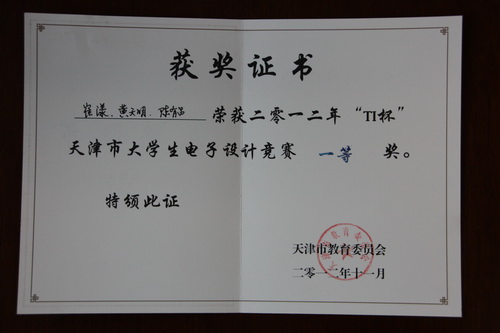 获奖证书
崔漾、黄天明、 荣获二零一二年“TI杯”
天津市大学生电子设计竞赛 一等 奖。
特颁此证
天津市教育委员会
二零一二年十一月